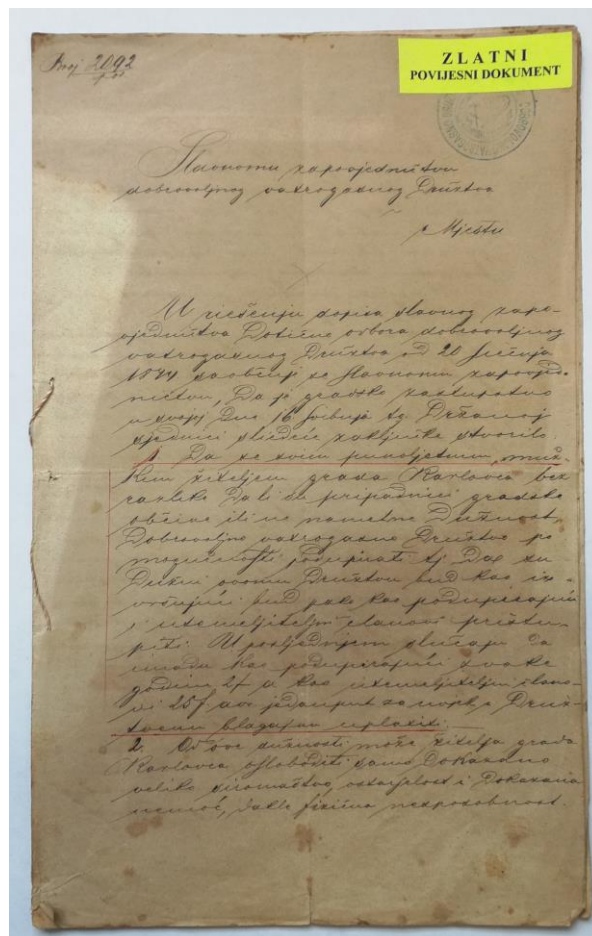 ZLATNI
POVIJESNI DOKUMENT
Broj 2092
Slavnomu zapovjedničtvu
dobrovoljnog vatrogasnog Družtva
u Mjestu
U riešenju dopisa slavnog zapo-
vjedničtva dotično odbora dobrovoljnog
vatrogasnog Družtva od 20 siečnja
1874 saobćuje se slavnomu zapovjed-
ničtvu, da je gradsko zastupstvo
u svojoj dne 16 držanoj
sjednici sliedeće zaključke stvorilo
1. Da se svim punoljetnim, muž-
kim žiteljem grada Karlovca bez
razlike da li su pripadnici gradske
obćine ili ne nametne dužnost,
Dobrovoljno vatrogasno Družtvo po
mogućnosti podupirati tj da su
dužni ovomu Družtvu bud kao iz-
vršujući bud pako kao podupirajući
i utemeljiteljni članovi pristu-
piti. U posljednjem slučaju da
imadu kao podupirajući svake
godine 2f a kao utemeljiteljni člano-
vi 25f jedanput za uviek u Druž-
tvenu blagajnu uplatiti.
2. Od ove dužnosti može žitelja grada
Karlovca osloboditi samo dokazano
veliko siromaštvo, ostarjelost i dokazana
nemoć, dakle fizična nesposobnost.